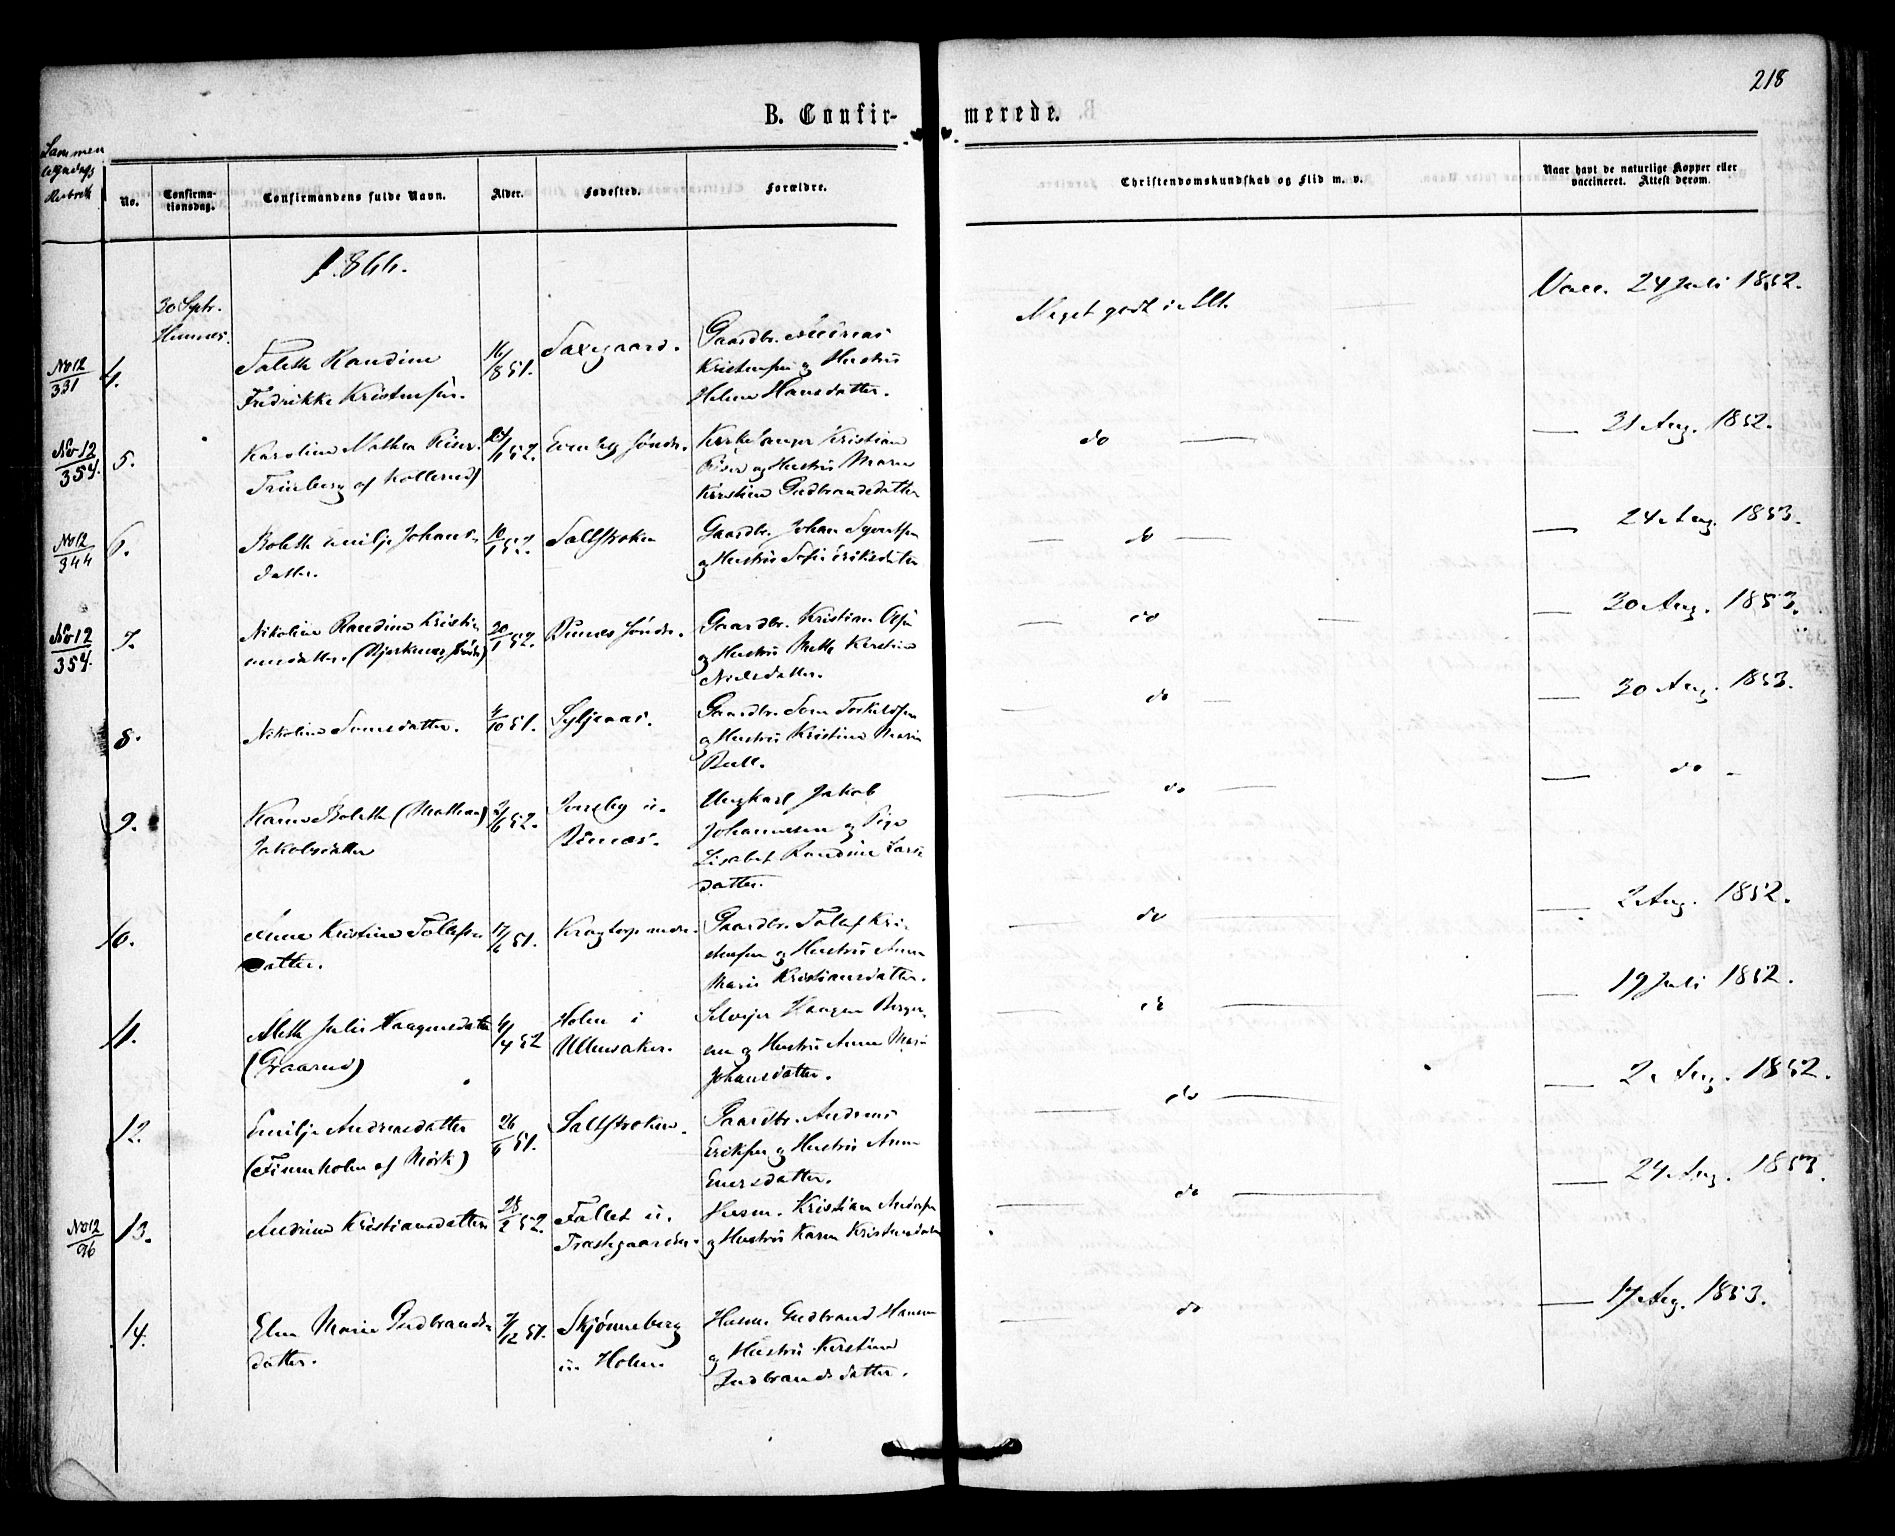 218
B. Confir- merede.
Sammen
No.
Confirma-
tionsdag.
Confirmandens fulde Navn.
Alder.
Fødested.
Forældre.
Christendomskundskab og Flid m. v.
Naar havt de naturlige Kopper eller
vaccineret. Attest derom.
1866.
30 Septr.
No 12
331
4.
Randine
Fredrikke Kristensen.
16/8 51.
Saxegaard.
Gaardbr. Andreas
Kristensen og Hustru
Helene Hansdatter.
Meget godt i Alt.
Vacc. 24 Juli 1852.
No 12
354.
5.
Karoline Mathea Riser.
af Kollerud)
52.
Kirkesanger Kristian
Riser og Hustru Maren
Kirstine Gudbrandsdatter
do
21 Aug. 1852.
No 12
344
6.
Bolette Emilje Johans-
datter.
10/1 52.
Gaardbr. Johan Syvertsen
og Hustru Sofie Eriksdatter
do
24 Aug. 1853.
No 12
354.
7.
Nikoline Randine Kristi-
ansdatter.
30/1 52.
Gaardbr. Kristian
og Hustru Mette Kirstine
Nielsdatter.
do
30 Aug. 1853.
8.
Nikoline
10 51.
Gaardbr.
og Hustru Kristine Marie
do
30 Aug. 1853.
9.
Karen Bolette (Mathea)
Jakobsdatter
6 52.
Ungkarl Jakob
Johannesen og Pige
Lisabet Randine Lars-
datter.
do
do
10.
Anne Kristine Tollefs-
datter.
17/6 51.
Gaardbr. Tollef Kri-
stensen og Hustru Anne
Marie Kristiansdatter.
do
2 Aug. 1852.
11.
Alette Julie Haagensdatter
(Graarud)
4 52
Holm i
Ullensaker.
Selveier Haagen Berger-
sen og Hustru Anne Marie
Johansdatter.
do
19 Juli 1852.
12.
Emilje Andreasdatter
(Finnholm af Mørk)
26
51.
Gaardbr. Andreas
Eriksen og Hustru Anne
Enersdatter.
do
2 Aug. 1852.
No 12
96
13.
Andrine Kristiansdatter
28/2 52.
Fallet u.
Husm. Kristian Andersen
og Hustru Karen Kristensdatter
do
24 Aug. 1853.
14.
Elen Marie Gudbrands-
datter.
12 51.
Skjønneberg
u. Holm
Husm. Gudbrand Hansen
og Hustru Kirstine
Gudbrandsdatter.
do
17 Aug. 1853.